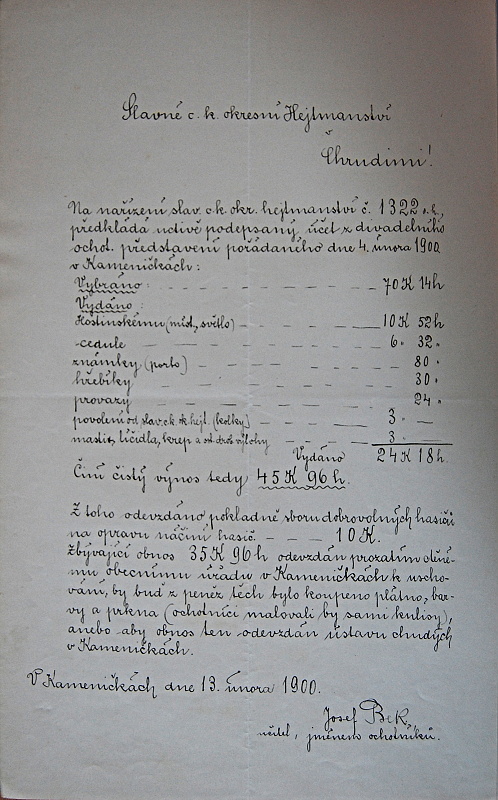 Slavné c. k. okresní Hejtmanství
v
Chrudimi!
Na nařízení slav. c. k. okr. hejtmanství č. 1322
předkládá uctivě podepsaný účet z divadelního
ochot. představení pořádaného dne 4. února 1900
v Kameničkách:
Vybráno: – – – – – – – 70 K 14 h
Vydáno:
Hostinskému (míst., světlo) – – – – 10 K 52 h
cedule – – – – – – – 6 " 32 "
známky (porto) – – – – – – 80 "
hřebíky – – – – – – – 30 "
provazy – – – – – – – 24 "
povolení od slav. c. k. ok. hejt. (kolky) – – – 3 " —
mastix, líčidla, krep a ost. drob. výlohy – – – 3 —
Vydáno 24 K 18 h.
Činí čistý výnos tedy 45 K 96 h.
Z toho odevzdáno pokladně sboru dobrovolných hasičů
na opravu náčiní hasič. – – – 10 K.
Zbývající obnos 35 K 96 h odevzdán prozatím ctěné-
mu obecnímu úřadu v Kameničkách k uscho-
vání, by buď z peněz těch bylo koupeno plátno, bar-
vy a prkna (ochotníci malovali by sami kulisy),
anebo aby obnos ten odevzdán ústavu chudých
v Kameničkách.
V Kameničkách dne 13. února 1900.
Josef Bek,
učitel, jménem ochotníků.